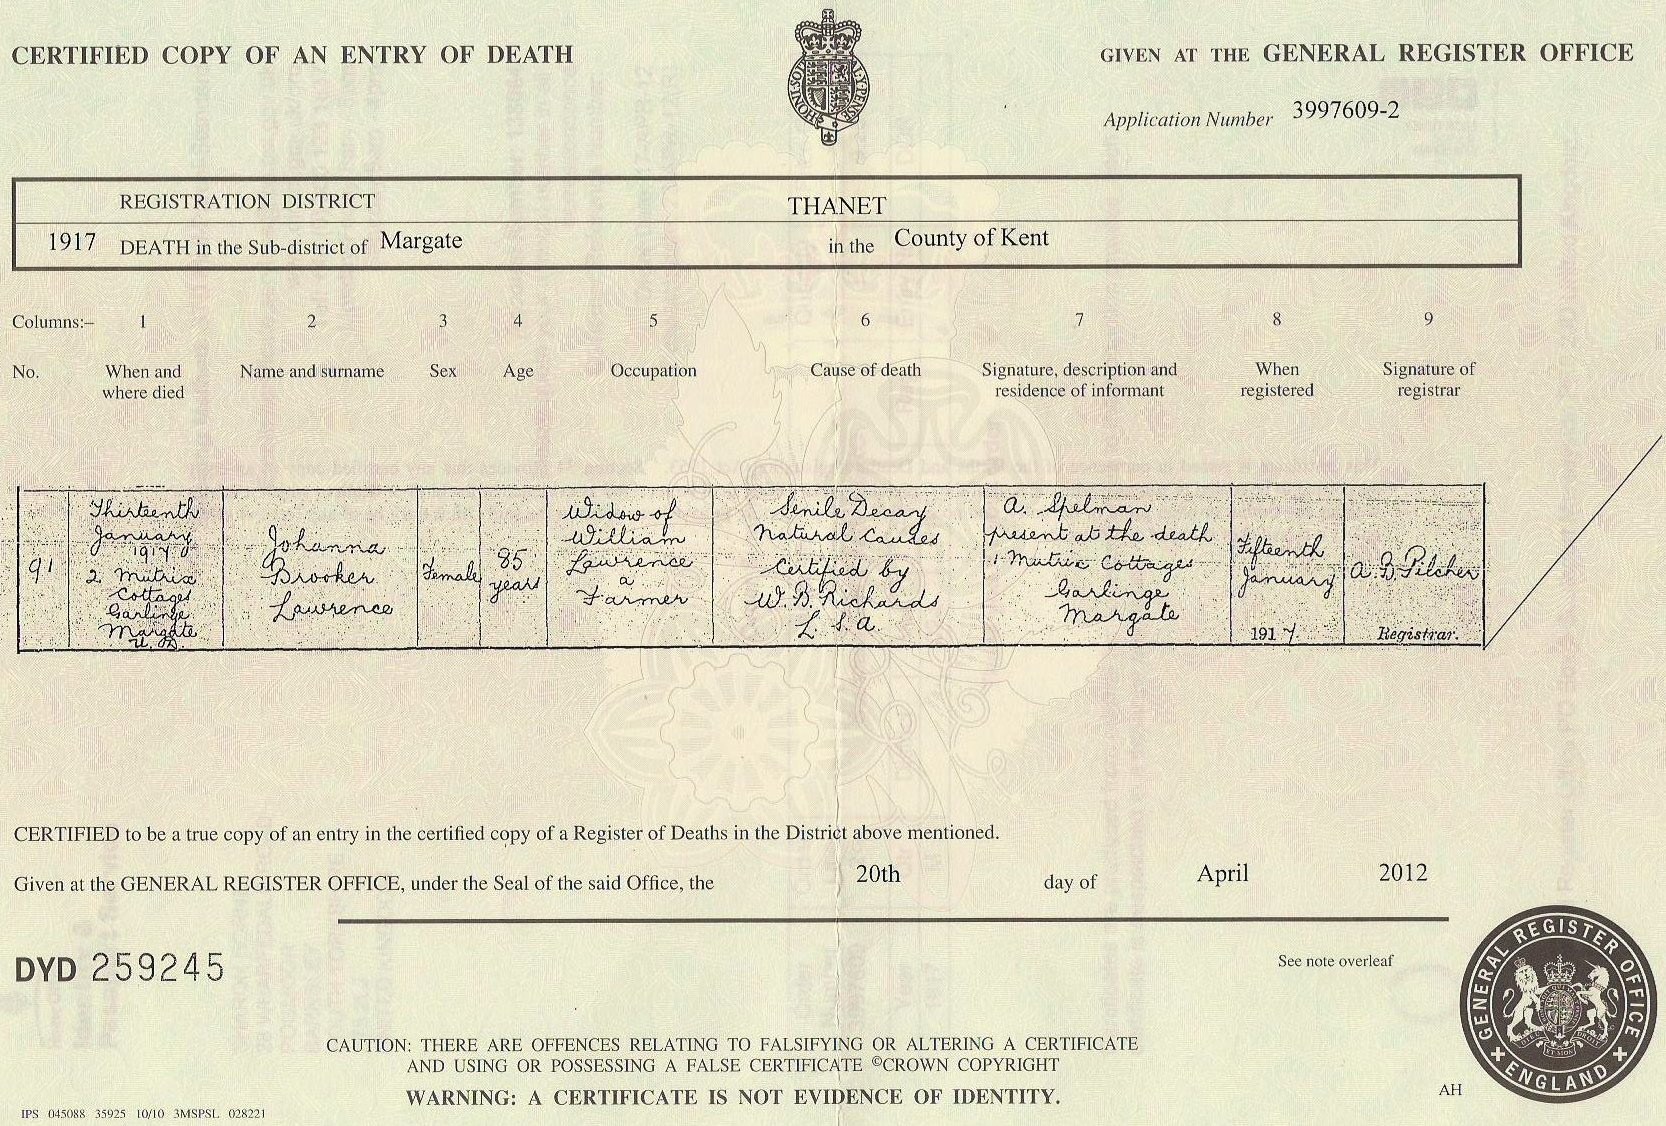 CERTIFIED COPY OF AN ENTRY OF DEATH
GIVEN AT THE GENERAL REGISTER OFFICE
Application Number 3997609-2
REGISTRATION DISTRICT THANET
1917 DEATH in the Sub-district of Margate in the County of Kent
Columns:– 1 2 3 4 5 6 7 8 9
No.
When and
where died
Name and surname
Sex
Age
Occupation
Cause of death
Signature, description and
residence of informant
When
registered
Signature of
registrar
91
Thirteenth
January
1917
2 Mutrix
Cottages
Garlinge
Margate
U.D.
Johanna
Brooker
Lawrence
Female
85
years
Widow of
William
Lawrence
a
Farmer
Senile Decay
Natural Causes
Certified by
W. B. Richards
L.S.A.
A. Spelman
present at the death
1 Mutrix Cottages
Garlinge
Margate
Fifteenth
January
1917
A. B. Pilcher
Registrar.
CERTIFIED to be a true copy of an entry in the certified copy of a Register of Deaths in the District above mentioned.
Given at the GENERAL REGISTER OFFICE, under the Seal of the said Office, the 20th day of April 2012
DYD 259245
See note overleaf
GENERAL REGISTER OFFICE
ENGLAND
CAUTION: THERE ARE OFFENCES RELATING TO FALSIFYING OR ALTERING A CERTIFICATE
AND USING OR POSSESSING A FALSE CERTIFICATE ©CROWN COPYRIGHT
WARNING: A CERTIFICATE IS NOT EVIDENCE OF IDENTITY.
AH
IPS 045088 35925 10/10 3MSPSL 028221